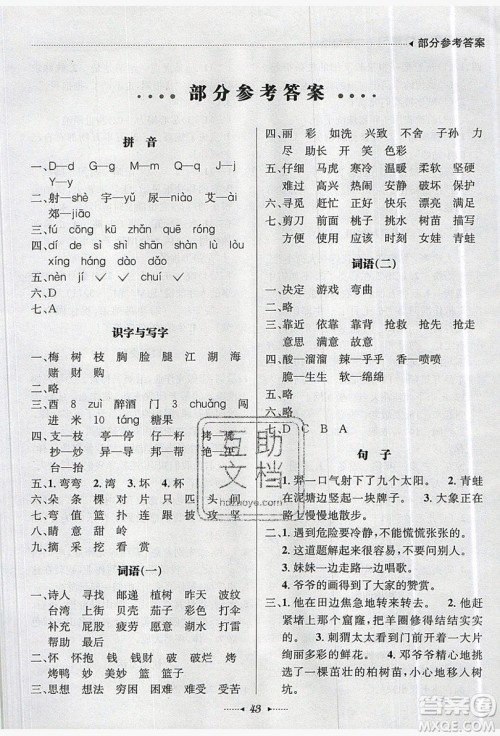 部分参考答案
部分参考答案
拼音
一、D—d G—g M—m Q—q
Y—y
二、射—shè 宇—yǔ 欢—huān 艾—ài
郊—jiāo
三、fú cōng kū zhǎn quē róng
四、dí de sì shì shān shàn lù lòu
xíng háng dáo dǎo
五、nèn jí ✓ ✓ ✓
六、D
七、A
识字与写字
一、梅 树 枝 胸 脸 腿 江 湖 海
赌 财 购
二、略
三、酉 8 zuì 醉酒 门 3 chuǎng 闯
进 米 10 táng 糖果
四、支—枝 亭—停 仔—籽
抄—炒 异—导 邦—帮
台—抬
五、1.弯弯 2.湾 3.坏 4.杯
六、朵 条 棵 个 片
七、弯 值 篮 扑 连 跟 披 攻 坚
八、睛 意 甜 岭
九、摘 采 挖 看 赏
词语(一)
一、诗人 寻找 邮递 植树 昨天 波纹
台湾 上楼 批评 兴奋 能干 打伞
补充 屁股 疲劳 优良 漂亮 守候
帮助 最后
二、怀 怀抱 抱 钱 钱包 破 破烂 烂
烤鸭 鸭 美妙 妙 篮 篮子
三、思想 想法 难道 难过 满意 满足
四、丽 彩 如洗 兴致 不舍 子孙 力
力 助乐 开 笑 色彩
五、仔细 马虎 寒冷 温暖 柔软 坚硬
难过 高兴 失败 成功 破坏 保护
六、寻觅 赶忙 愉快 漂亮 喜欢
七、剪刀 前面 桃子 挑水 树苗 苗壮
方便 使用 应该 时刻 女娃 青蛙
词语(二)
一、决定 游戏 弯曲
二、略
三、靠近 依靠 靠背 抢救 抢先 抢走
喜悦 思想 温暖 紧张
四、酸—溜溜 辣—乎乎 香—喷喷
脆—生生 软—绵绵
五、略
七、D C B A
句子
一、1.羿一口气射下了九个太阳。 2.青蛙
在泥塘边竖起了一块牌子。 3.大象在
路上慢慢地散步。
二、1.遇到危险要冷静,不能慌慌张张的。
2.这道题解出来可真不容易!
3.妹妹一边走路一边唱歌。
4.爷爷的画得到了大家的赞赏。
三、1.他在田边焦急地转来转去。 2.他赶
紧堵上那个窟窿,把羊圈修得结结实
实的。 3.刺猬太太走到门前收下了那
束花。 4.邓爷爷精心地挑选
了一棵茁壮的柏树苗,小心地移入树
坑。
43
互助文档